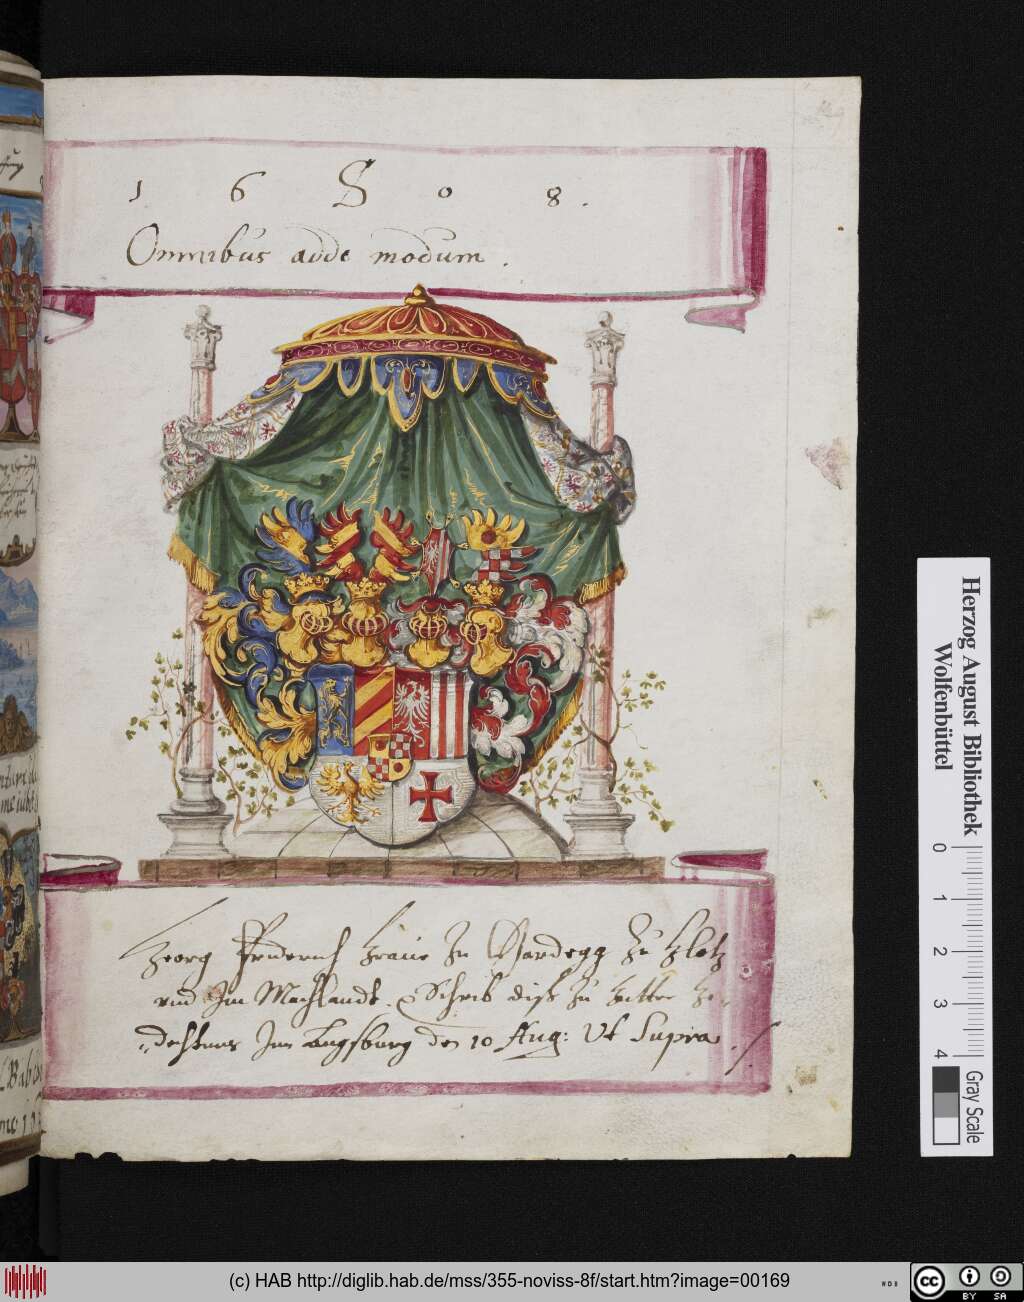 1 6 S 0 8.
Omnibus adde modum.
Georg Friderich Graue Zu Hardegg Zu Glatz
vnd Im Machlandt. Schrib diß Zu gutter Ge-
dechtnus Inn Augsburg den 10 Aug: Vt Supra
Herzog August Bibliothek
Wolfenbüttel
0 1 2 3 4
Gray Scale
(c) HAB http://diglib.hab.de/mss/355-noviss-8f/start.htm?image=00169
WDB
cc BY SA